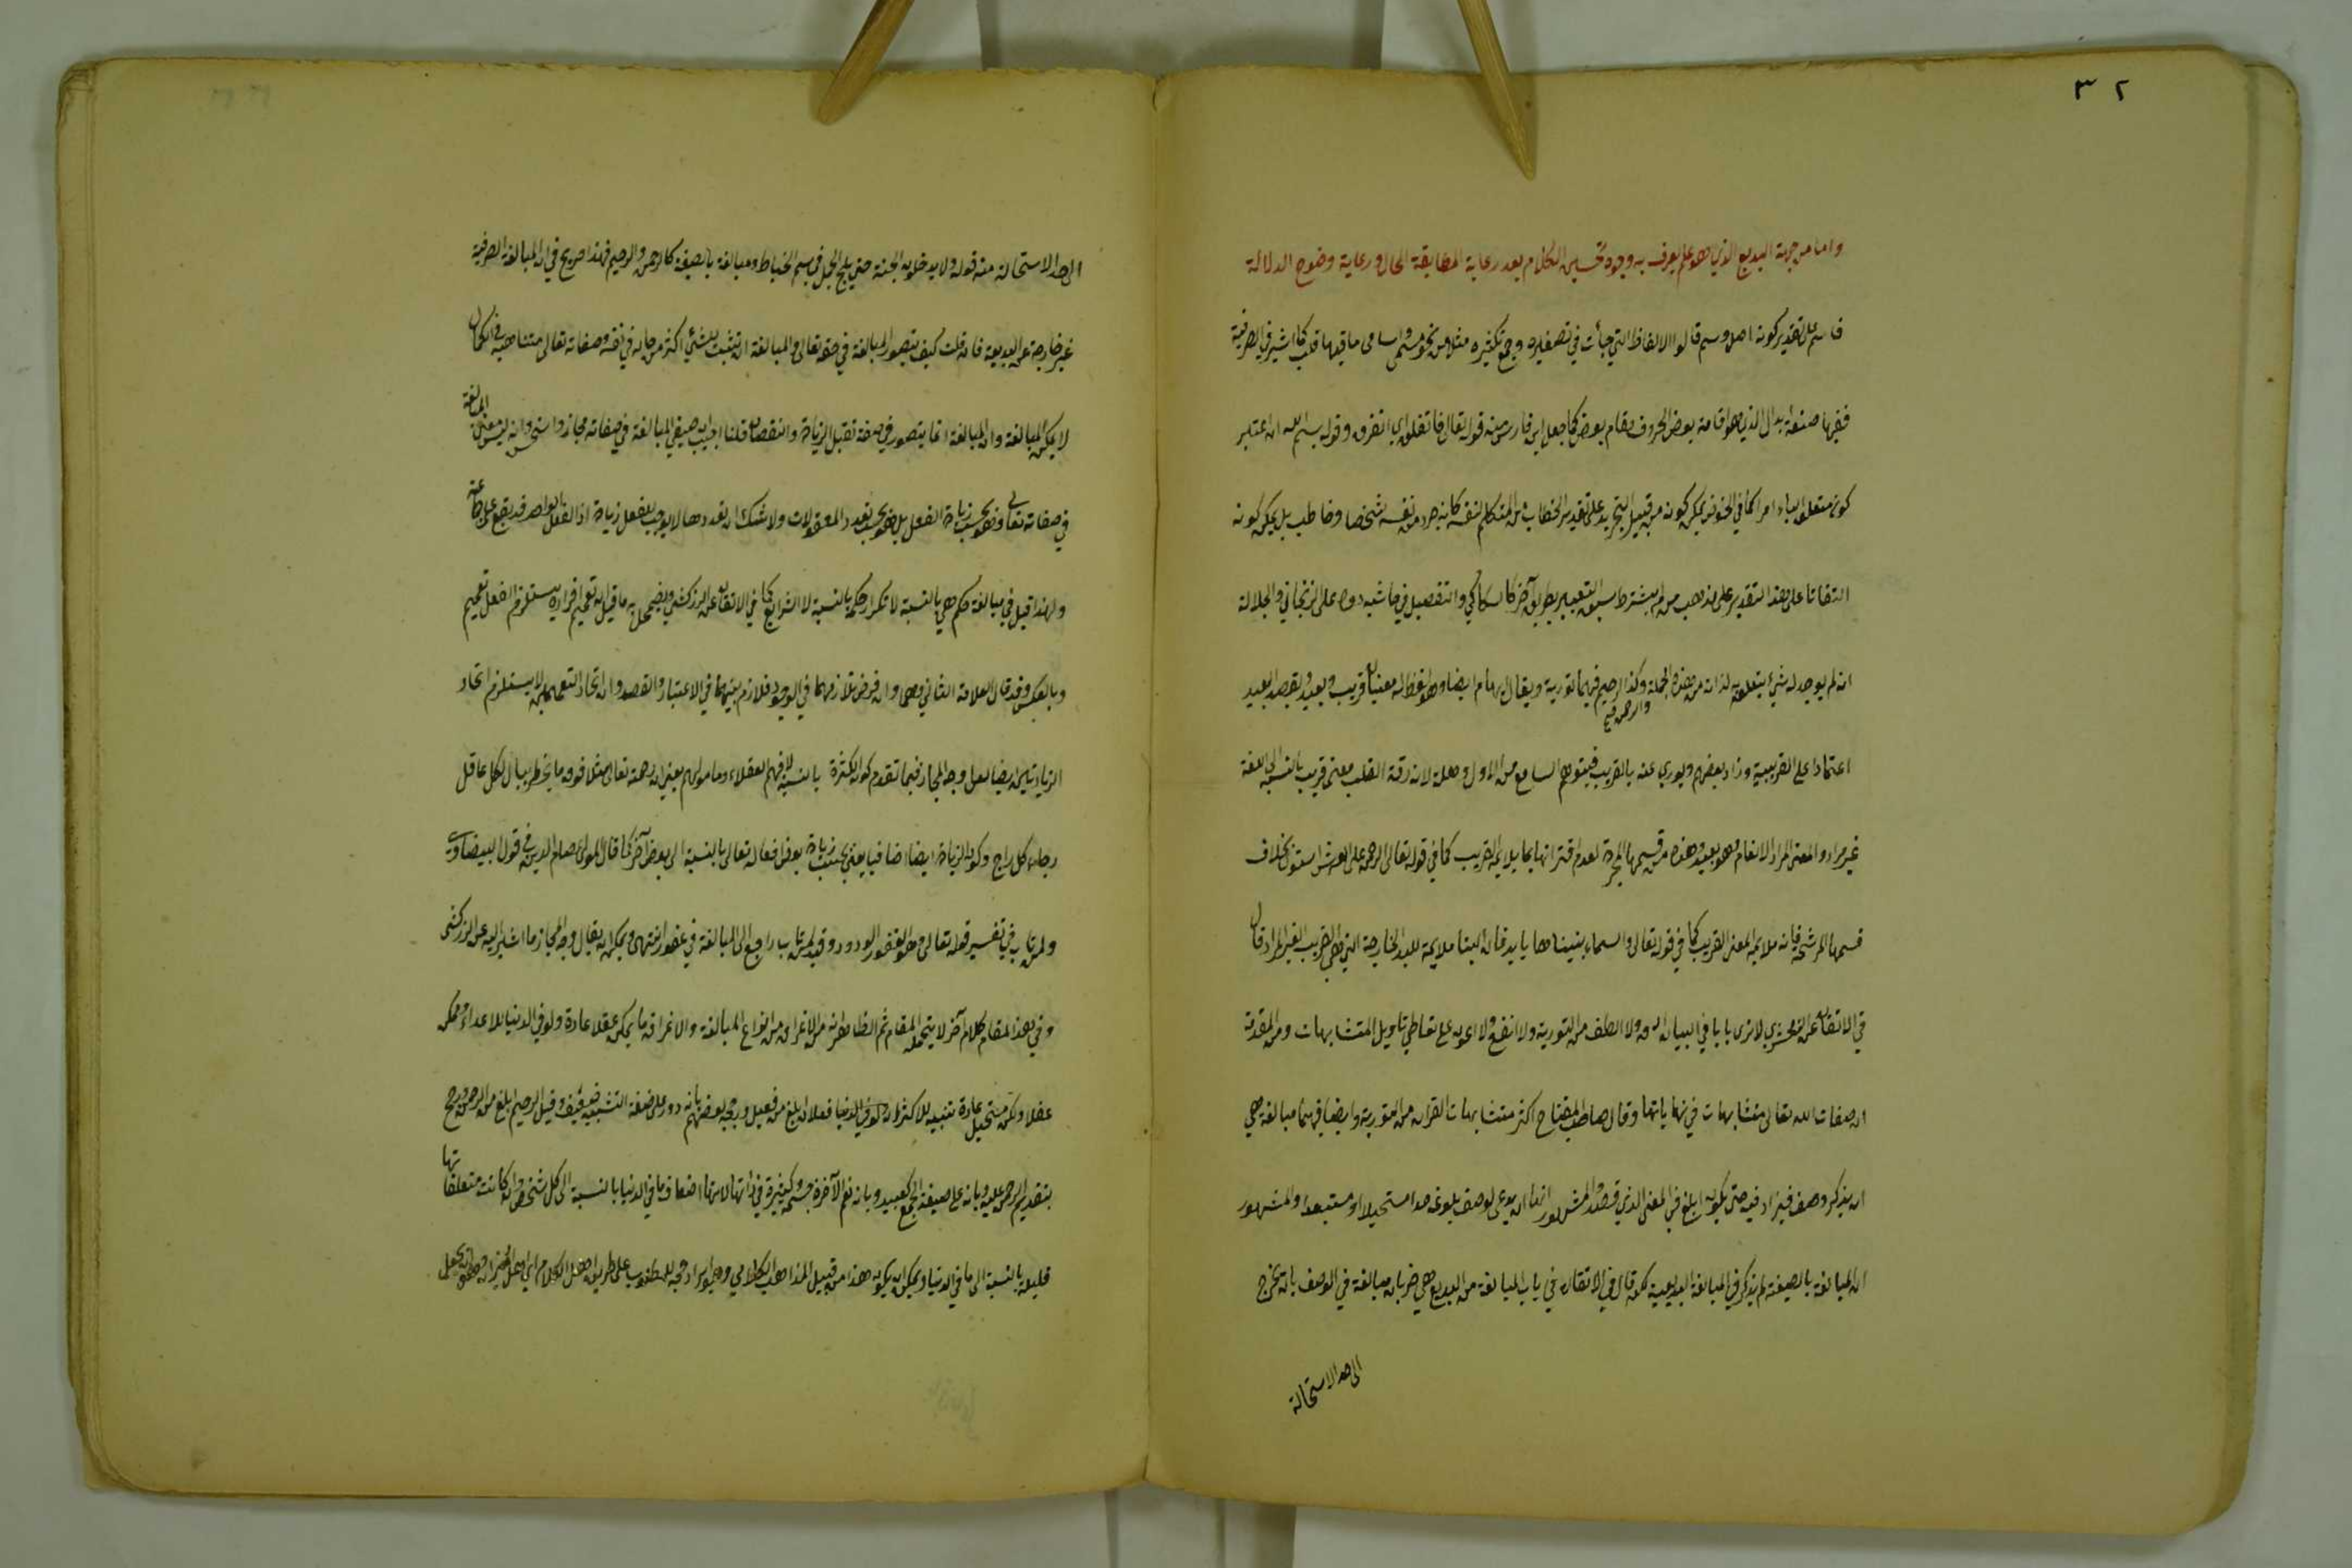 ٣٢
واما من جهة البديع الذي هو علم يعرف به وجوه تحسين الكلام بعد رعاية المطابقة الحال ورعاية وضوح الدلالة
فاسم على تقدير كونه اصله وسم قالوا الالفاظ التي جيأت في تصغيره وجمع تكثيره مثلا من نحو سمي واسامى ما فيها قلب كما اشير في الصرفية
ففيها صنعة ابدال الذي هو اقامة بعض الحروف مقام بعض كما جعل ابن فارس منه قوله تعالى فانفلق اي انفرق وقوله بسم الله ان اعتبر
كون متعلق الباء امرا كما في النحو يمكن كونه من قبيل التجريد على تقدير الخطاب من المتكلم لنفسه كانه جرد من نفسه شخصا وخاطب بل يمكن كونه
التفاتا على هذا التقدير على مذهب من لم يشترط سبق التعبير بطريق آخر كالسكاكي والتفصيل في حاشية دده على الزنجاني والجلالة
انه لم يوجد له شيء يتعلق لذاته من هذه الجملة وكذا الرحيم فيهما تورية ويقال ايهام ايضا وهو لفظ له معنيان قريب وبعيد ويقصد البعيد
والرحمن
اعتمادا على القرينة وزاد بعضهم ويوري عنه بالقريب فيتوهم السامع من الاول وهلة لان رقة القلب معنى قريب بالنسبة الى اللغة
غير مراد والمعنى المراد الانعام وهو بعيد وهذه من قسيمها المجردة لعدم اقترانها بما يلايم القريب كما في قوله تعالى الرحمن على العرش استوى بخلاف
قسمها المرشحة فانه ملايم المعنى القريب كما في قوله تعالى والسماء بنيناها بايد فان البنا ملايمة لليد الجارحة التي هي القريب الغير المراد قال
في الاتقان عن الزمخشري لا ترى بابا في البيان ادق ولا الطف من التورية ولا انفع ولا اعون على تعاطي تاويل المتشابهات ومن المقدمة
ان صفات الله تعالى متشابهات في نهاياتها وقال صاحب المفتاح اكثر متشابهات القرآن من التورية وايضا فيهما مبالغة هي
ان يذكر وصف فيزاد فيه حتى يكون ابلغ في المعنى الذي قصده والمشهور انها ان يدعى لوصف بلوغه حدا مستحيلا او مستبعدا والمشهور
ان المبالغة بالصيغة لم يذكر في المبالغة البديعية لكن قال في الاتقان في باب المبالغة من البديع هي ضربان مبالغة في الوصف بان يخرج
الى حد الاستحالة
الى حد الاستحالة منه قوله ولا يدخلون الجنة حتى يلج الجمل في سم الخياط ومبالغة بالصيغة كالرحمن والرحيم فهذا صريح في ان المبالغة الصرفية
غير خارجة عن البديعة فان قلت كيف يتصور المبالغة في حقه تعالى والمبالغة ان تثبت للشيء اكثر من حاله في نفسه وصفاته تعالى متناهية في الكمال
لا يمكن المبالغة وان المبالغة انما يتصور في صفة تقبل الزيادة والنقصان قلنا اجيب ان صيغ المبالغة في صفاته مجاز وانه ليس معنى المبالغة
في صفاته تعالى وهو بحسب زيادة الفعل بل هو بحسب تعدد المفعولات ولا شك ان تعددها لا يوجب للفعل زيادة اذ الفعل الواحد قد يقع على جماعة
ولهذا قيل في مبالغة حكم هي بالنسبة لا تكرار حكمه بالنسبة لا الشرايع كما في الاتقان عن الزركشي ويضمحل به ما قيل ان تعميم افراده يستلزم الفعل تعميم
وبالعكس وقد قال العلامة الثاني وهما وان فرض تلازمهما في الوجود فلا تلازم بينهما في الاعتبار والقصد وان اتحاد التعميمين لا يستلزم اتحاد
الزيادتين ايضا لعل وجه المجاز فيما تقدم كون الكثرة بالنسبة لافهم العقلاء وما مولهم يعني ان رحمته تعالى مثلا فوق ما يخطر ببال لكل عاقل
رجاء كل راج وكون الزيادة ايضا اضافيا يعني بحسب زيادة بعض افعاله تعالى بالنسبة الى بعض آخر كما قال المولى عصام الدين في قول البيضاوي
ولمن تاب في تفسير قوله تعالى وهو الغفور الودود وقيد لمن تاب راجع الى المبالغة في غفور انتهى ويمكن ان يقال وجه المجاز ما اشير اليه عن الزركشي
وفي هذا المقام كلام آخر لا يتحمله المقام ثم الظاهر انه من الاغراق من انواع المبالغة والاغراق ما يمكن عقلا عادة ولو في الدنيا للاعداء وممكن
عقلا ولكن مستحيل عادة تنبيه للاكثر ان في الدنيا فعلان ابلغ من فعيل ورجحه بعضهم بانه ورد على صيغة التثنية وقيل الرحيم ابلغ من الرحمن ورجح
بتقديم الرحمن عليه وبانه على صيغة الجمع كعبيد وبان نعم الآخرة جسيمة وكثيرة في ذاتها لانها اضعاف ما في الدنيا بالنسبة الى كل شخص وان كانت متعلقاتها
قليلة بالنسبة الى ما في الدنيا ويمكن ان يكون هذا من قبيل المذاهب الكلامي وهو ايراد حجة للمطلوب على طريق اهل الكلام